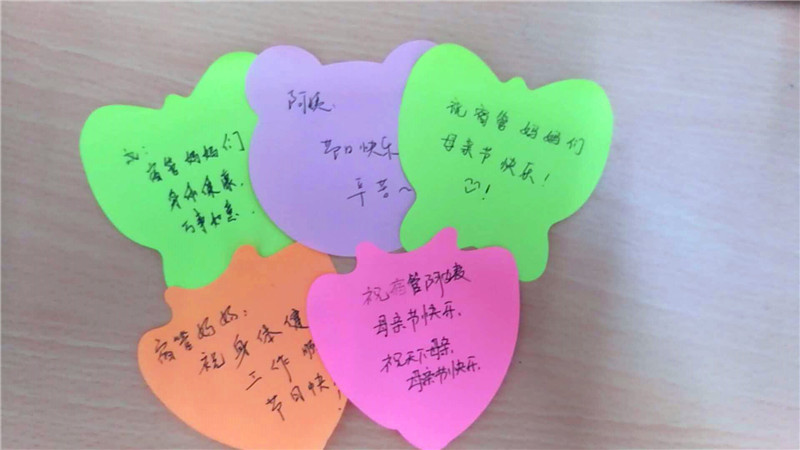 宿管妈妈们
身体健康,
万事如意.
阿姨.
节日快乐
辛苦~
祝宿管妈妈们
母亲节快乐!
宿管妈妈:
祝身体健
工作顺
节日快
祝宿管阿姨
母亲节快乐.
祝天下母亲,
母亲节快乐.